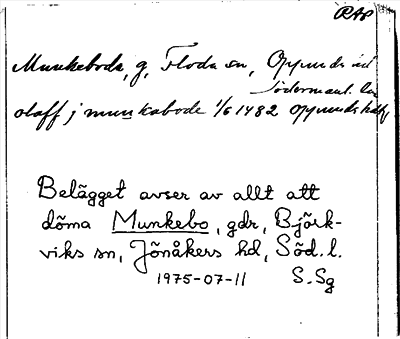 RAP
Munkeboda, g, Floda sn, Oppunda hd
Södermanl. län
olaff j munkabode 1/6 1482 oppunda
Belägget avser av allt att
döma Munkebo, gdr, Björk-
viks sn, Jönåkers hd, Söd. l.
1975-07-11 S. Sg